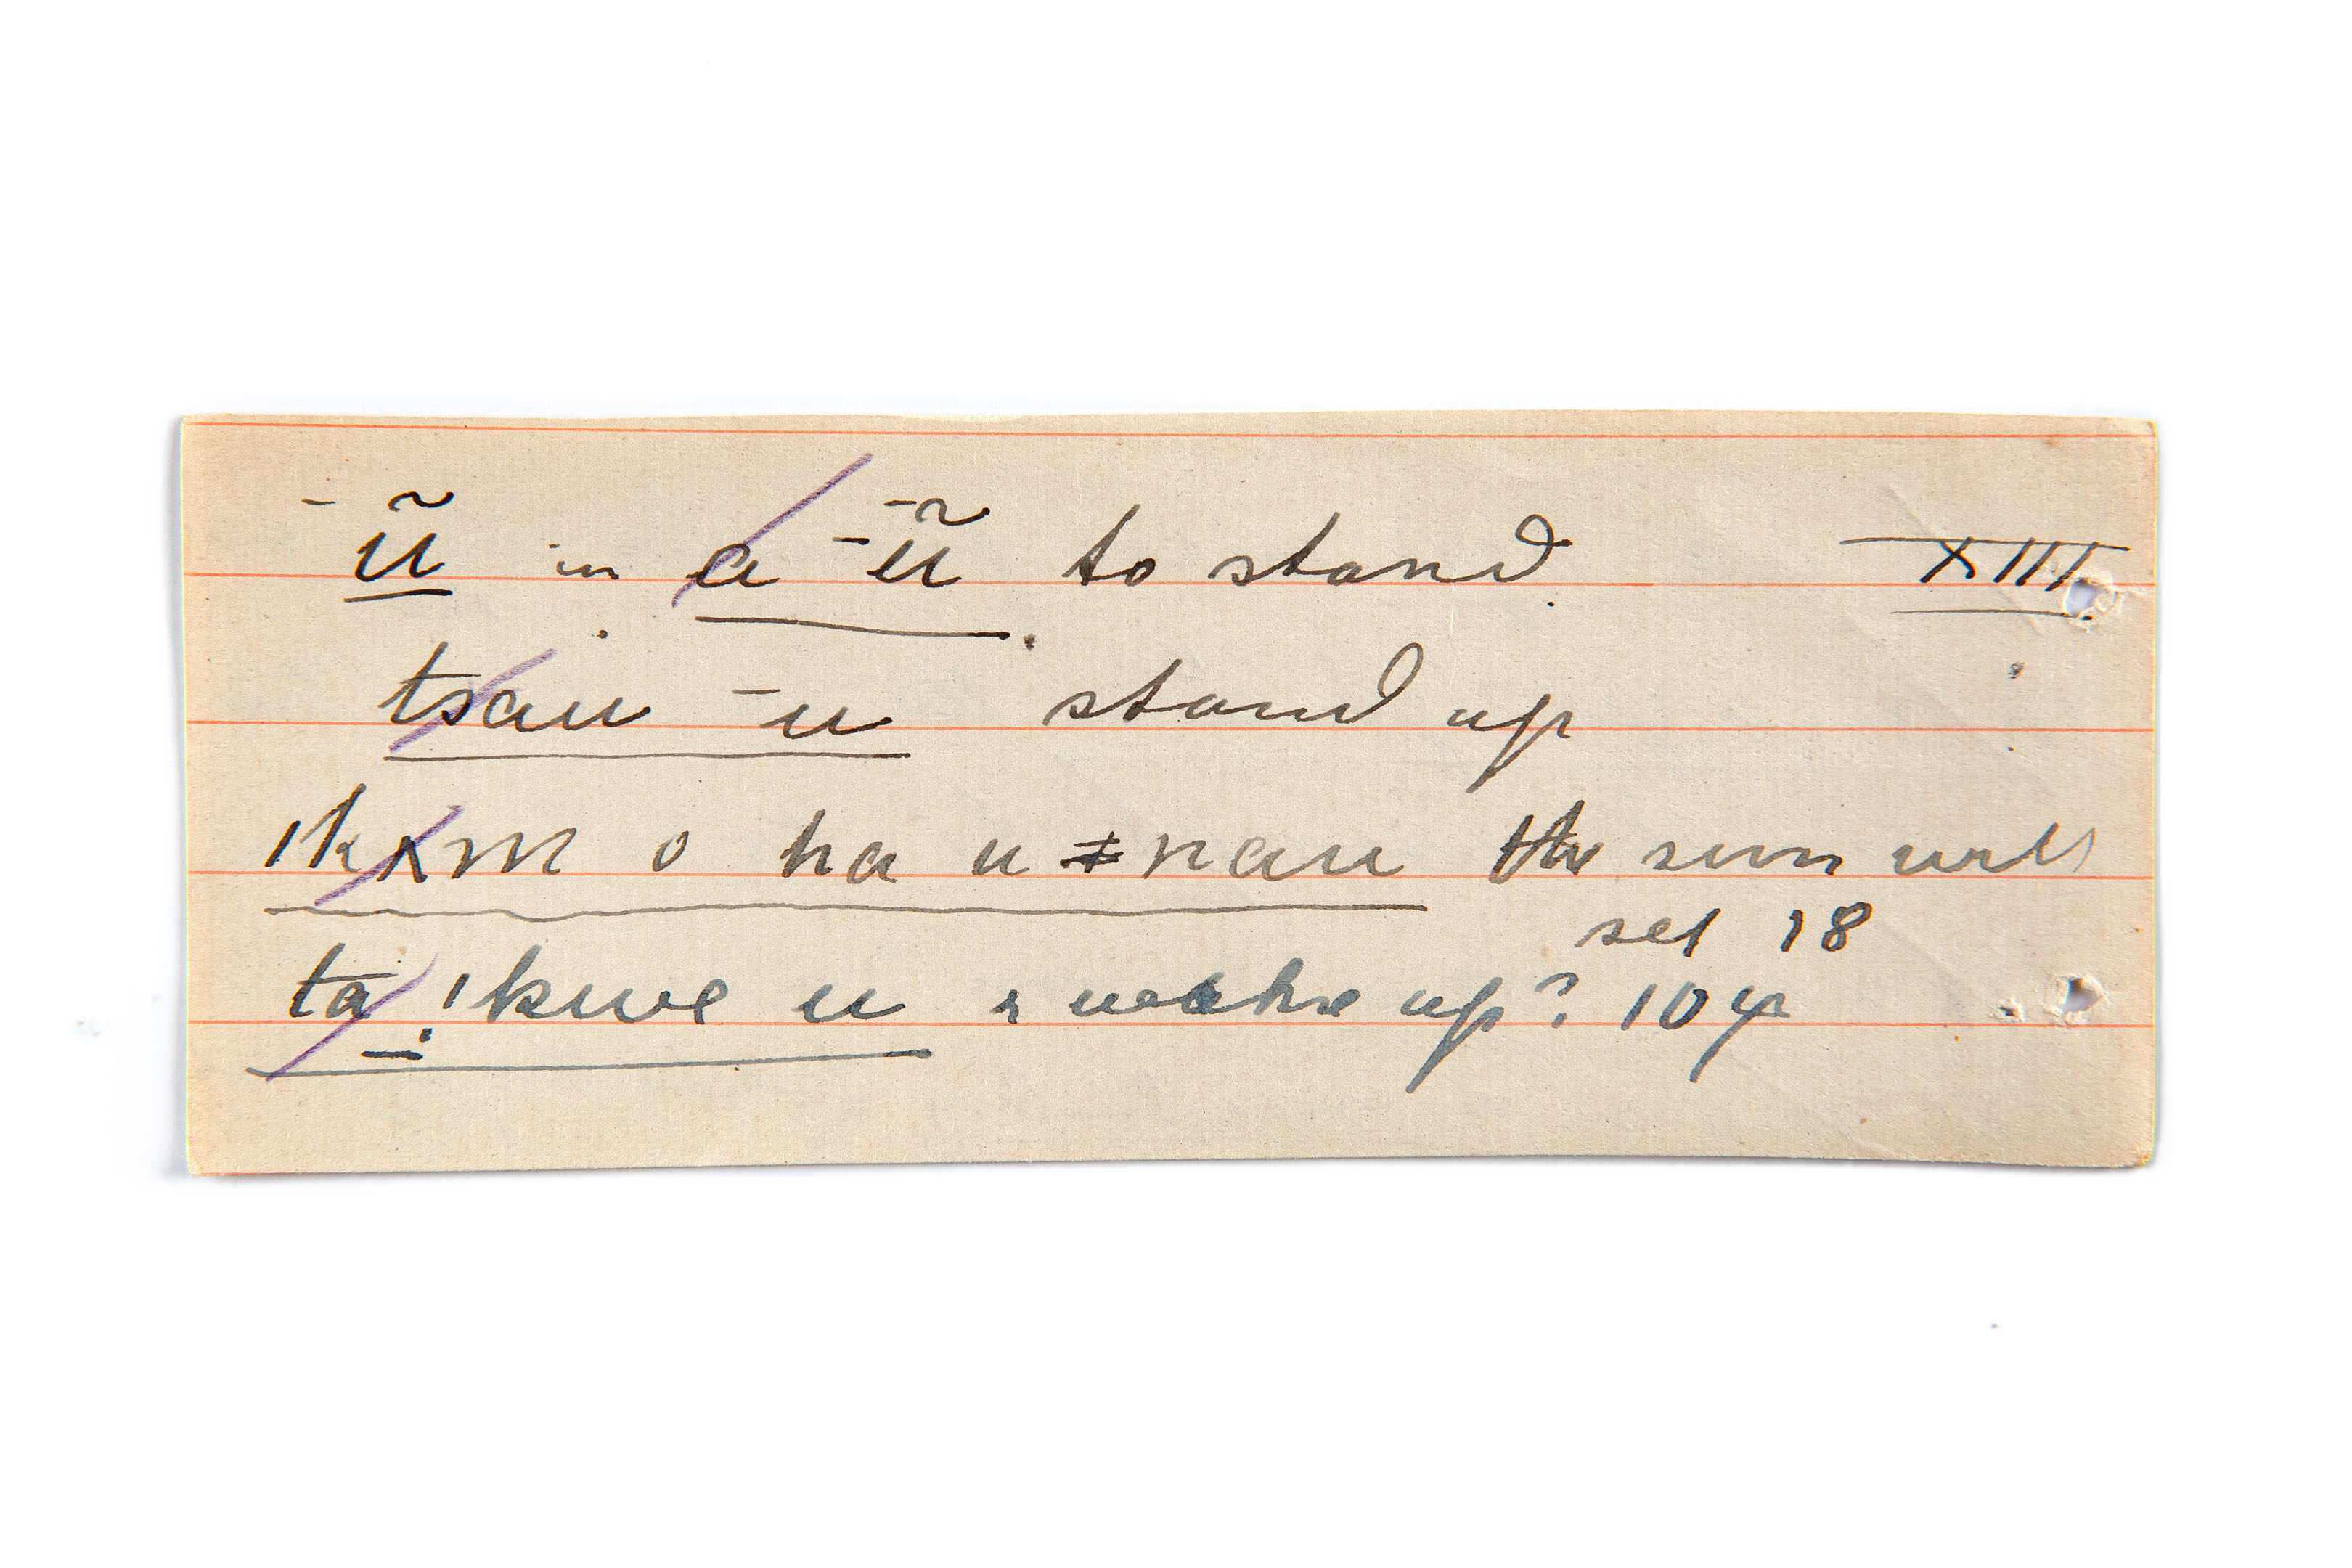 ‾ũ in a ‾ũ to stand XIII
tsau ‾u stand up
ǀkxm o ha u ǂnau the sun will
set 18
ta ǃkwe u wake up? 10